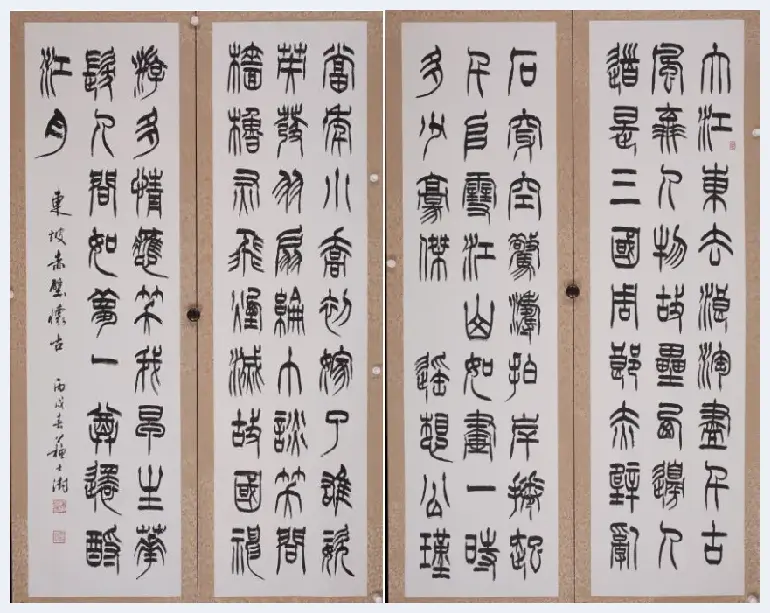 大江東去浪淘盡千古
風流人物故壘西邊人
道是三國周郎赤壁亂
石穿空驚濤拍岸捲起
千堆雪江山如畫一時
多少豪傑 遙想公瑾
當年小喬初嫁了雄姿
英發羽扇綸巾談笑間
檣櫓灰飛煙滅故國神
游多情應笑我早生華
髮人間如夢一尊還酹
江月
東坡赤壁懷古 丙戌春 蘇士澍